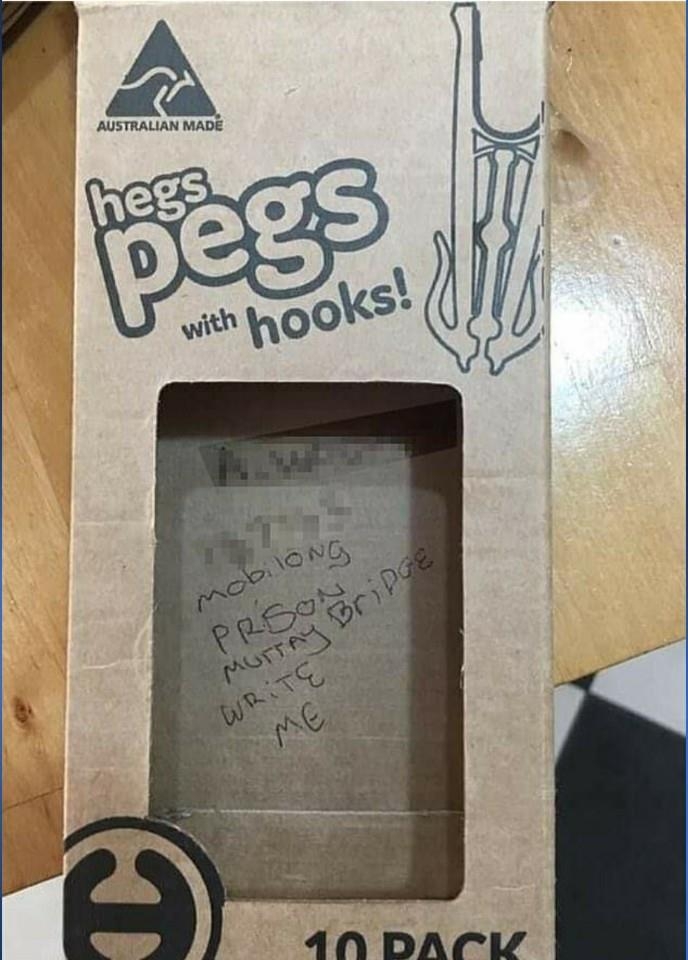 AUSTRALIAN MADE
hegs
pegs
with hooks!
mobilong
PRISON
MURRAY BRiDGE
WRiTE
ME
10 PACK